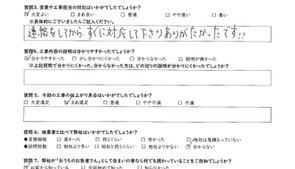 質問3. 営業や工事担当の対応はいかがでしたでしょうか?
☑大変よい □まあ良い □普通 □やや悪い □悪い
※具体的にございましたらご記入ください。
連絡をしてから、すぐに対応して下さりありがたかったです!!
質問4. 工事内容の説明は分かりやすかったでしょうか?
□大変分かりやすかった ☑分かりやすかった □普通 □少し分かりにくかった □分からなかった □説明が無かった
質問5. 今回の工事の仕上がり具合はいかがでしたでしょうか?
□大変満足 ☑まあ満足 □普通 □やや不満 □不満
質問6. 他業者と比べて弊社はいかがでしたでしょうか?
□高かった □同じくらい □安かった
□他社より多い □他社と同じくらい □他社より少ない □分からない
質問7. 弊社が「おうちのお医者さん」として住まいの事なら何でも携わっていることをご存知でしょうか?